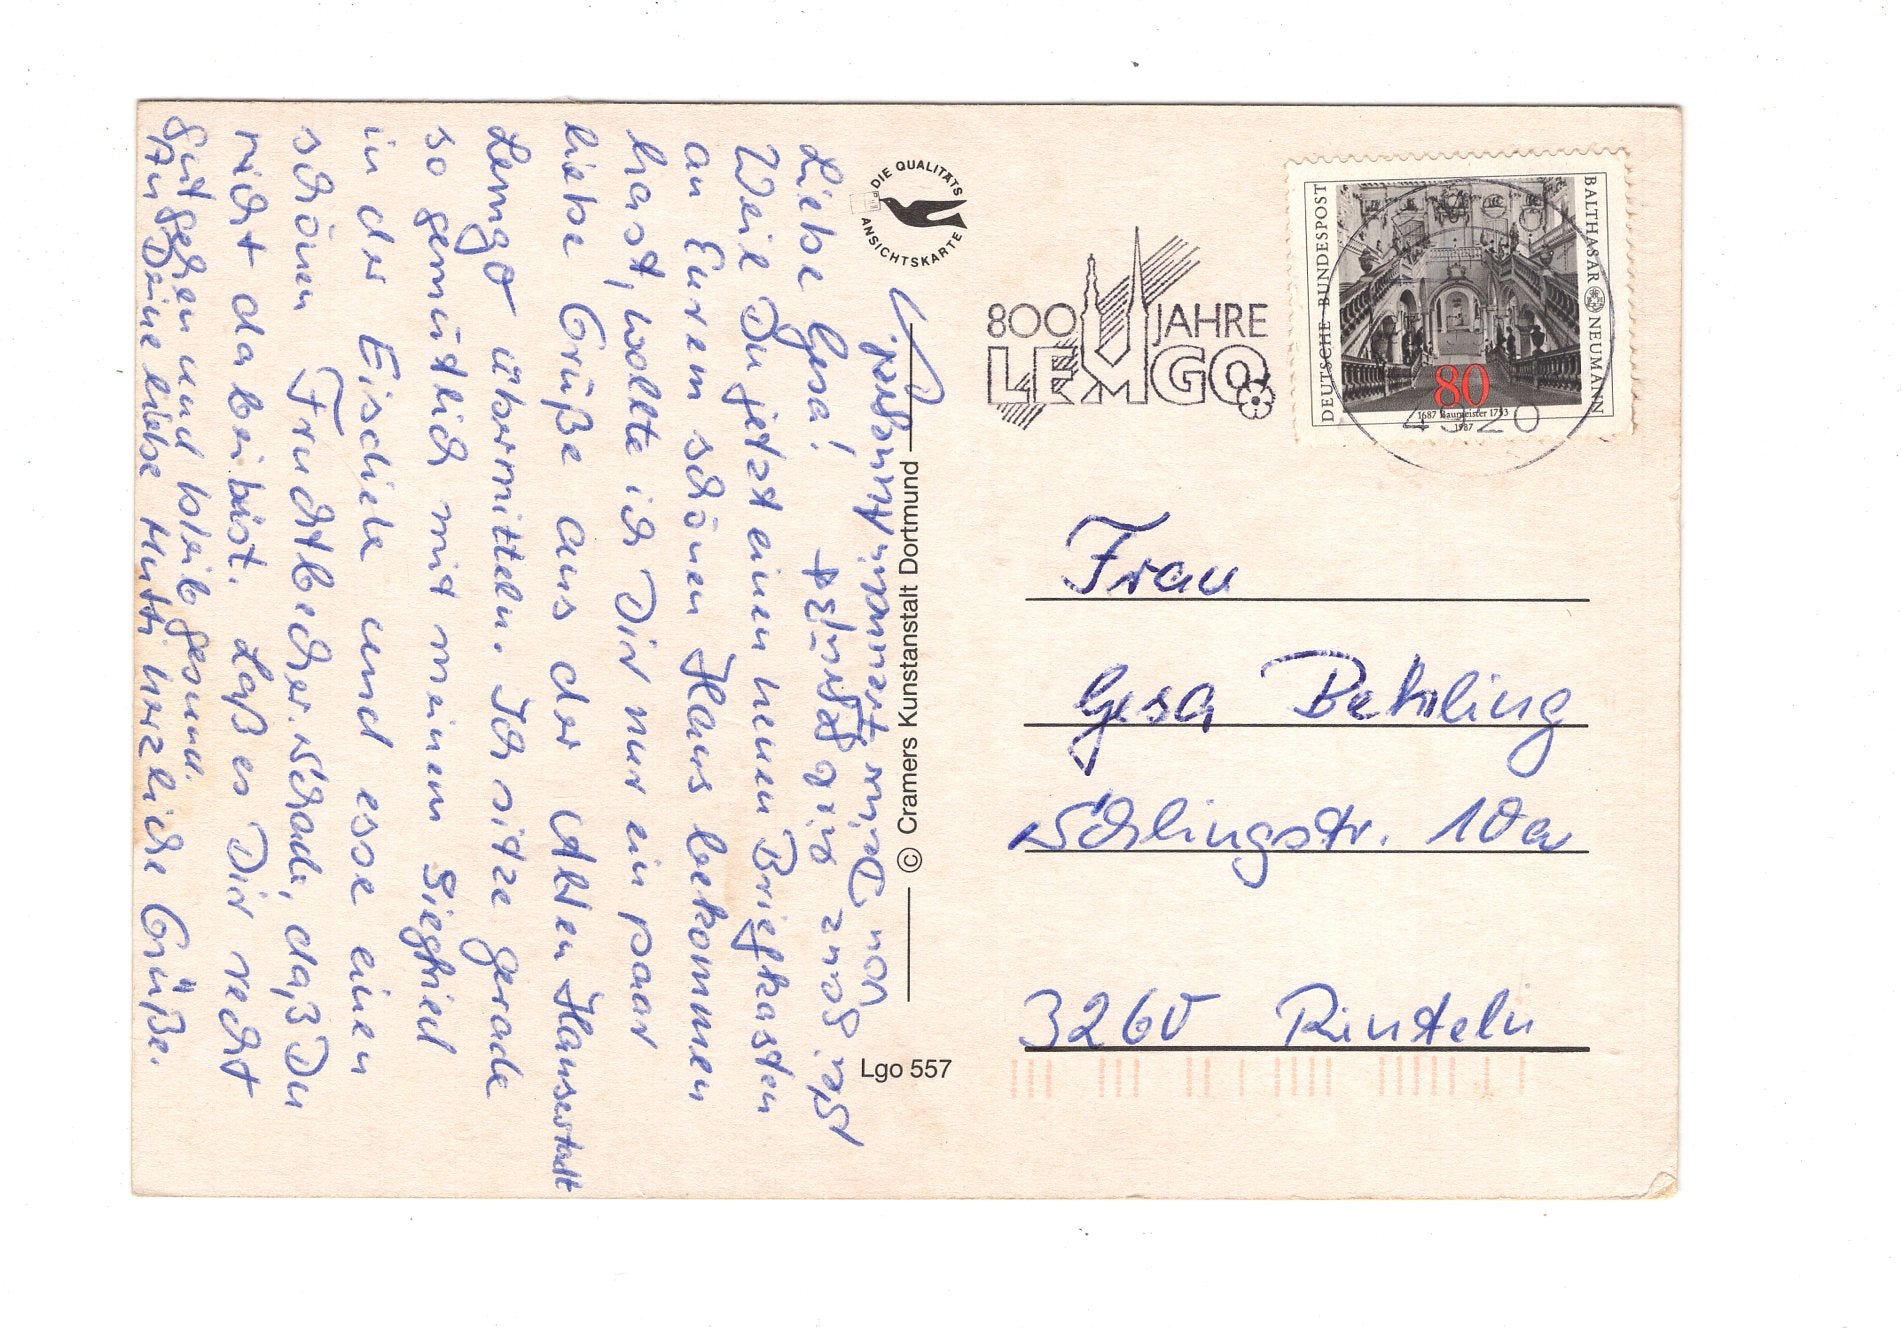 Liebe Gesa!
Weil Du jetzt einen neuen Briefkasten
an Eurem schönen Haus bekommen
hast, wollte ich Dir nur ein paar
liebe Grüße aus der Alten Hansestadt
Lemgo übermitteln. Ich sitze gerade
so gemütlich mit meinem Siegfried
in der Eisdiele und esse einen
schönen Fruchtbecher. Schade, daß Du
nicht dabei bist. Laß es Dir recht
gut gehen und bleib gesund.
An Deine liebe Mutti herzliche Grüße.
Sei ganz lieb gegrüßt
von Deiner Freundin Annegret.
DIE QUALITÄTS
ANSICHTSKARTE
© Cramers Kunstanstalt Dortmund
Lgo 557
800 JAHRE
LEMGO
DEUTSCHE BUNDESPOST
BALTHASAR NEUMANN
80
1687 Baumeister 1753
1987
4920
Frau
Gesa Behling
Schlingstr. 10a
3260 Rinteln